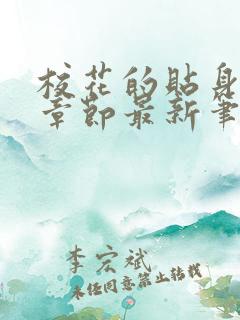 校花的贴身
章节最新笔
李宏斌
未经同意禁止转载